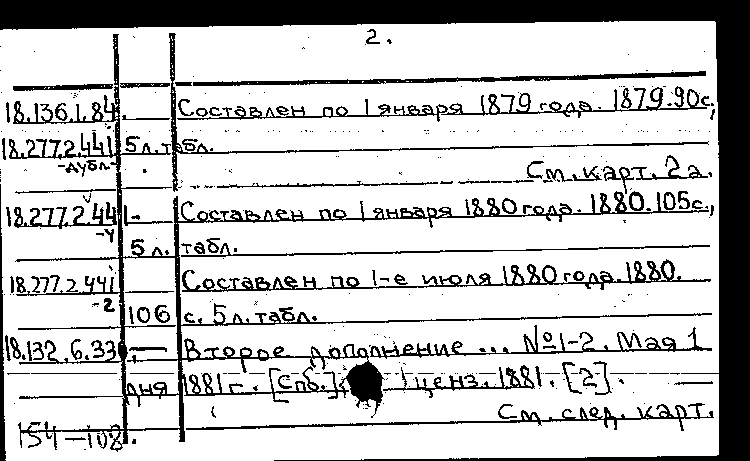 2.
18.136.1.84. Составлен по 1 января 1879 года. 1879. 90с.,
18.277.2.441 5 л. табл.
-дубл-
См. карт. 2а.
18.277.2.441- Составлен по 1 января 1880 года. 1880. 105с.,
-4
5 л. табл.
18.277.2.441 Составлен по 1-е июля 1880 года. 1880.
-2
106 с. 5 л. табл.
18.132.6.33 — Второе дополнение ... №1-2. Мая 1
дня 1881 г. [Спб.], ценз. 1881. [2].
См. след. карт.
154-108.